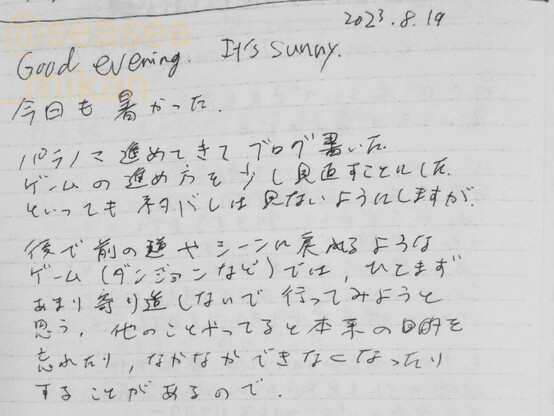 2023.8.19
@seasea
_mikan
Good evening. It's sunny.
今日も暑かった.
パラノマ進めてきてブログ書いた.
ゲームの進め方を少し見直すことにした.
といってもネタバレは見ないようにしますが.
後で前の道やシーンに戻れるような
ゲーム(ダンジョンなど)では, ひとまず
あまり寄り道しないで行ってみようと
思う. 他のことやってると本来の目的を
忘れたり, なかなかできなくなったり
することがあるので.